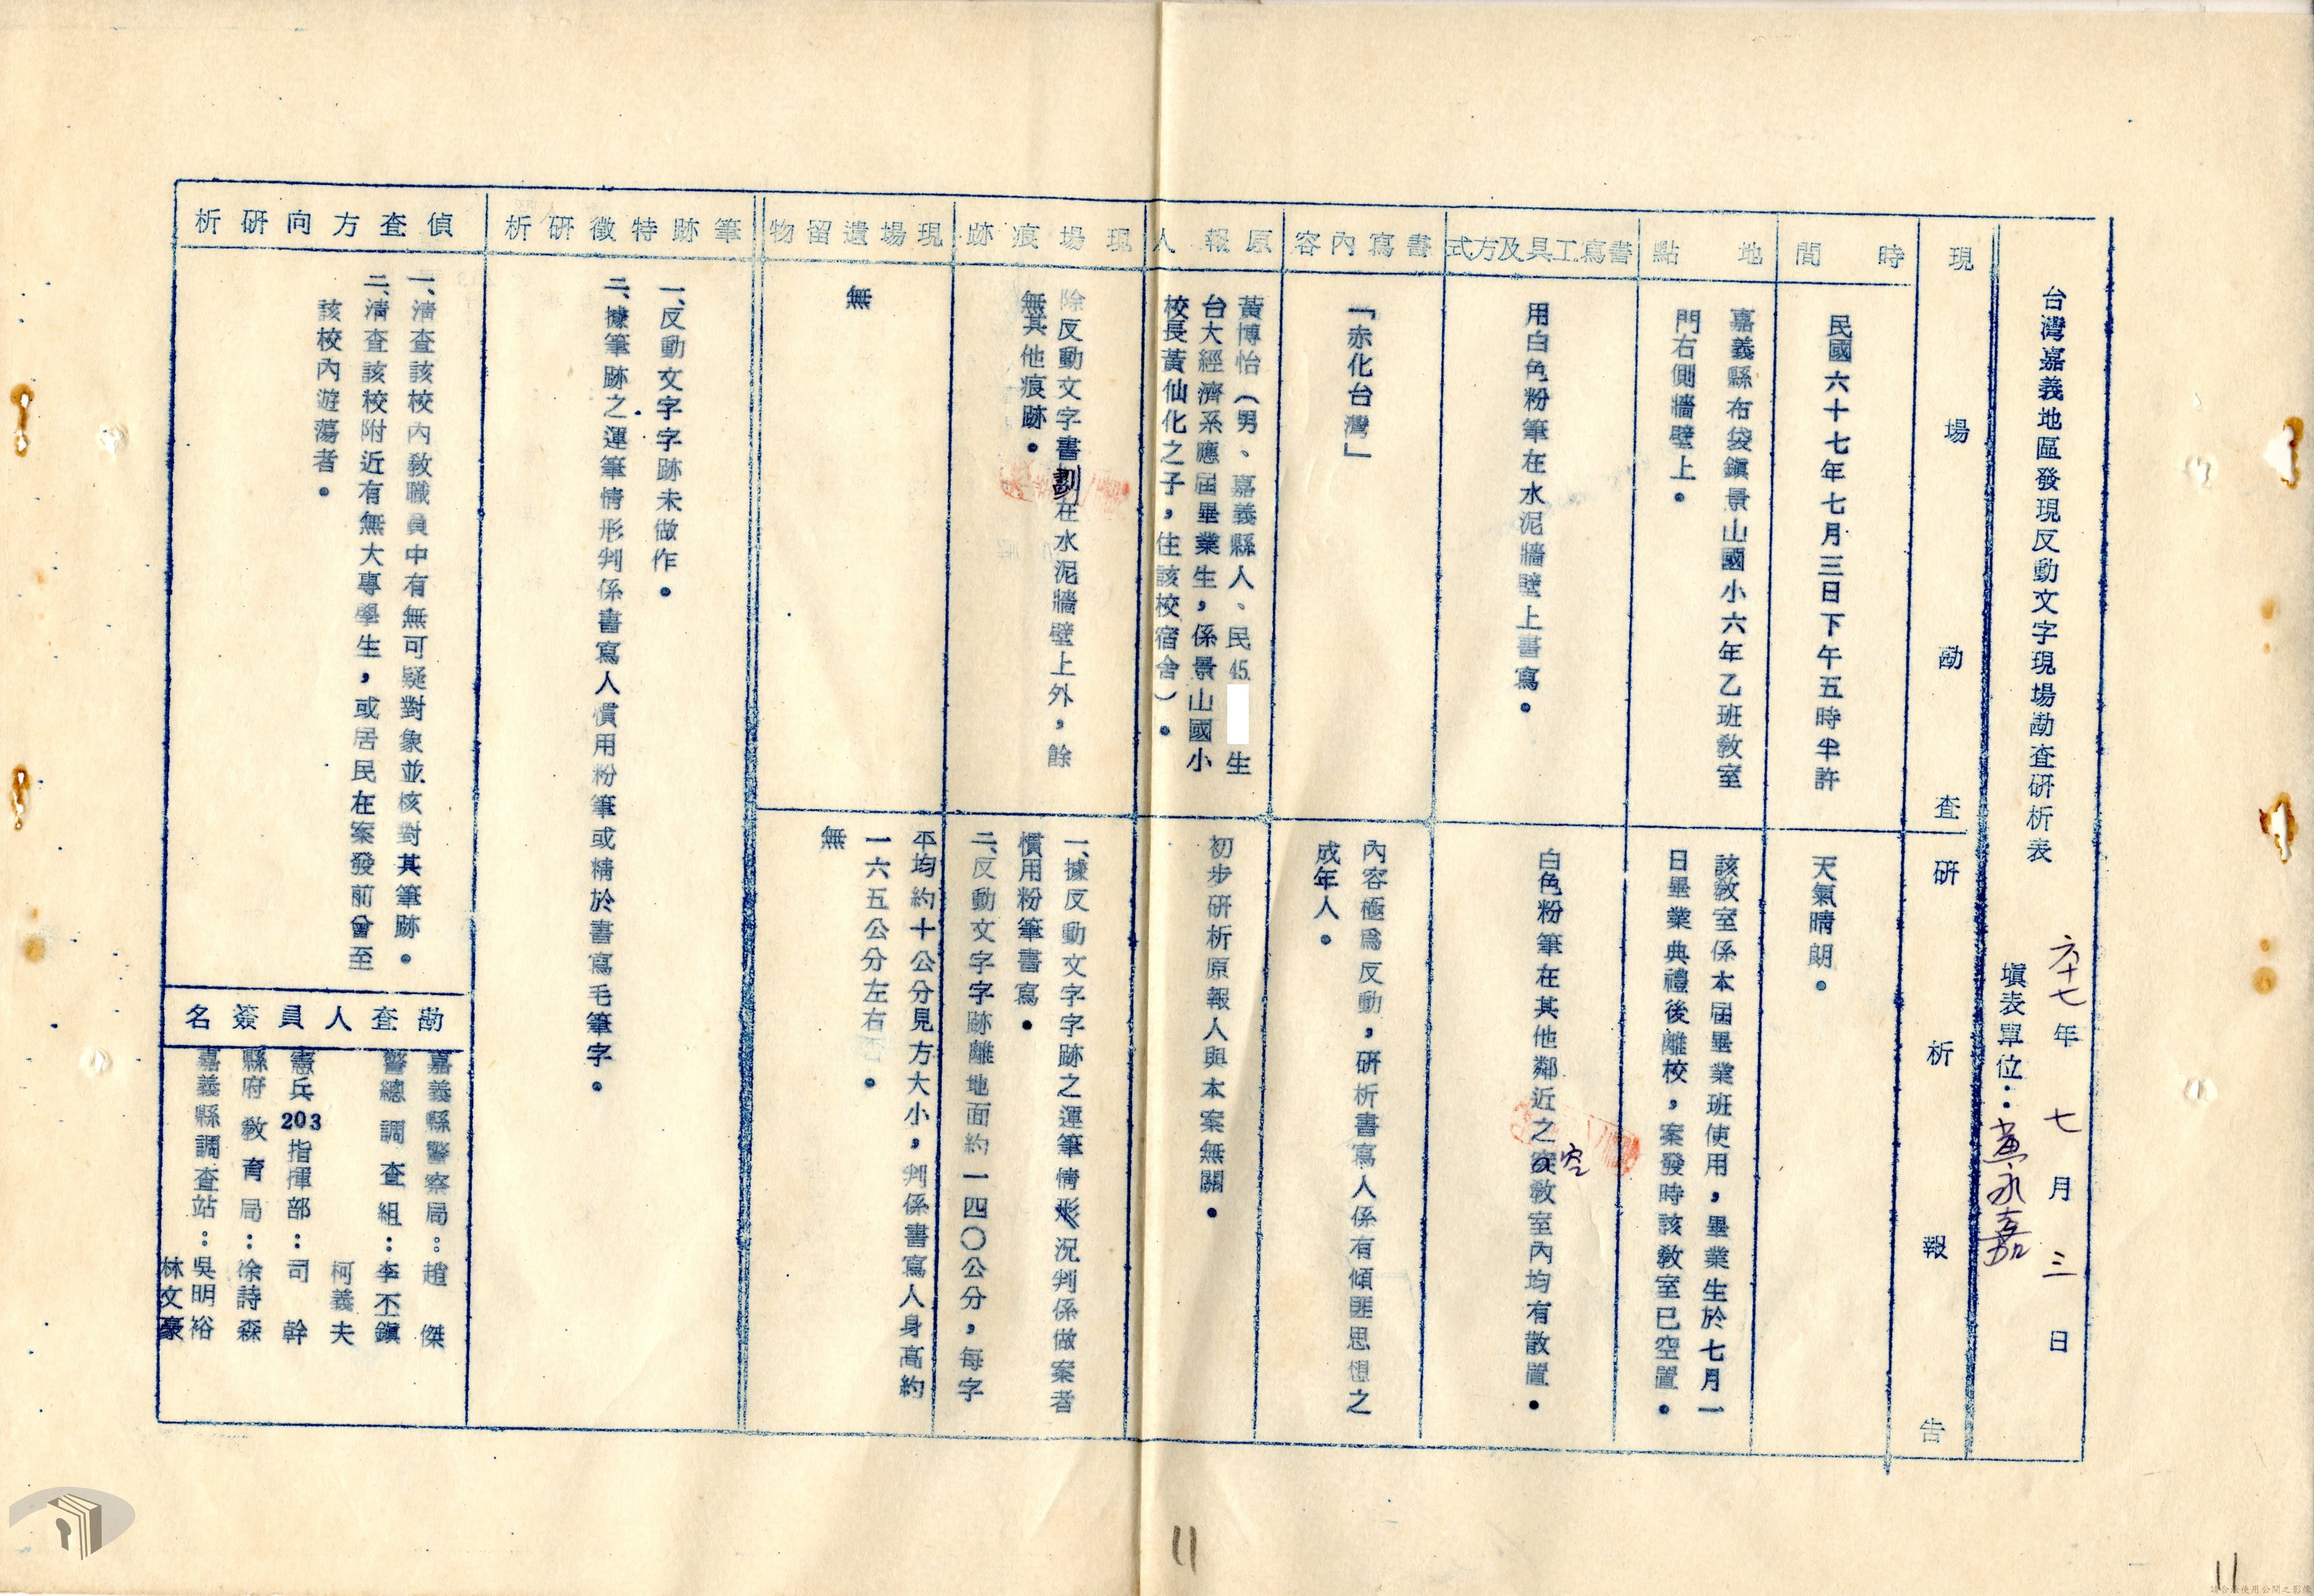 台灣嘉義地區發現反動文字現場勘查研析表
六十七年七月三日
填表單位：黃永嘉
現場勘查
研析報告
時間
民國六十七年七月三日下午五時半許
天氣晴朗。
地點
嘉義縣布袋鎮景山國小六年乙班教室
門右側牆壁上。
該教室係本屆畢業班使用，畢業生於七月一
日畢業典禮後離校，案發時該教室已空置。
書寫工具及方式
用白色粉筆在水泥牆壁上書寫。
白色粉筆在其他鄰近之空教室內均有散置。
書寫內容
「赤化台灣」
內容極為反動，研析書寫人係有傾匪思想之
成年人。
原報人
黃博怡（男、嘉義縣人、民45.生
台大經濟系應屆畢業生，係景山國小
校長黃仙化之子，住該校宿舍）。
初步研析原報人與本案無關。
現場痕跡
除反動文字書劃在水泥牆壁上外，餘
無其他痕跡。
一、據反動文字字跡之運筆情形況判係做案者
慣用粉筆書寫。
二、反動文字字跡離地面約一四〇公分，每字
平均約十公分見方大小，判係書寫人身高約
一六五公分左右。
現場遺留物
無
無
筆跡特徵研析
一、反動文字字跡未做作。
二、據筆跡之運筆情形判係書寫人慣用粉筆或精於書寫毛筆字。
偵查方向研析
一、清查該校內教職員中有無可疑對象並核對其筆跡。
二、清查該校附近有無大專學生，或居民在案發前曾至
該校內遊蕩者。
勘查人員簽名
嘉義縣警察局：趙傑
警總調查組：李丕鎮
柯義夫
憲兵203指揮部：司幹
縣府教育局：涂詩森
嘉義縣調查站：吳明裕
林文豪
11
11